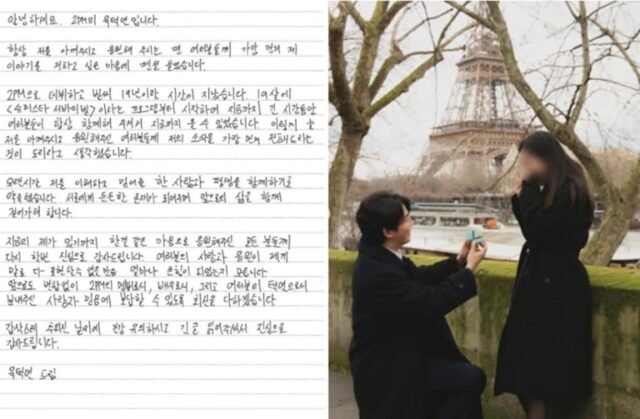 안녕하세요. 2PM의 옥택연입니다.
항상 저를 아껴주시고 응원해 주시는 팬 여러분들께 가장 먼저 제
이야기를 전하고 싶은 마음에 펜을 들었습니다.
2PM으로 데뷔하고 벌써 19년이란 시간이 지났습니다. 19살에
<슈퍼스타 서바이벌>이라는 프로그램부터 시작하여 지금까지 긴 시간동안
여러분들이 항상 함께해 주셔서 지금까지 올 수 있었습니다. 이렇게 늘
저를 아껴주시고 응원해주신 여러분들께 저의 소식을 가장 먼저 전해드리는
것이 도리라고 생각했습니다.
오랜시간 저를 이해하고 믿어줄 한 사람과 평생을 함께하기로
약속했습니다. 서로에게 든든한 존재가 되어주며 앞으로의 삶을 함께
걸어가려 합니다.
지금의 제가 있기까지 한결 같은 마음으로 응원해주신 모든 분들께
다시 한번 진심으로 감사드립니다. 여러분의 사랑과 응원이 제게
말로 다 표현할 수 없을 만큼 얼마나 큰 힘이 되었는지 모릅니다.
앞으로도 변함없이 2PM의 멤버로서, 배우로서, 그리고 여러분의 택연으로서
보내주신 사랑과 믿음에 보답할 수 있도록 최선을 다하겠습니다.
갑작스레 추워진 날씨에 건강 유의하시고 긴 글 읽어주셔서 진심으로
감사드립니다.
옥택연 드림